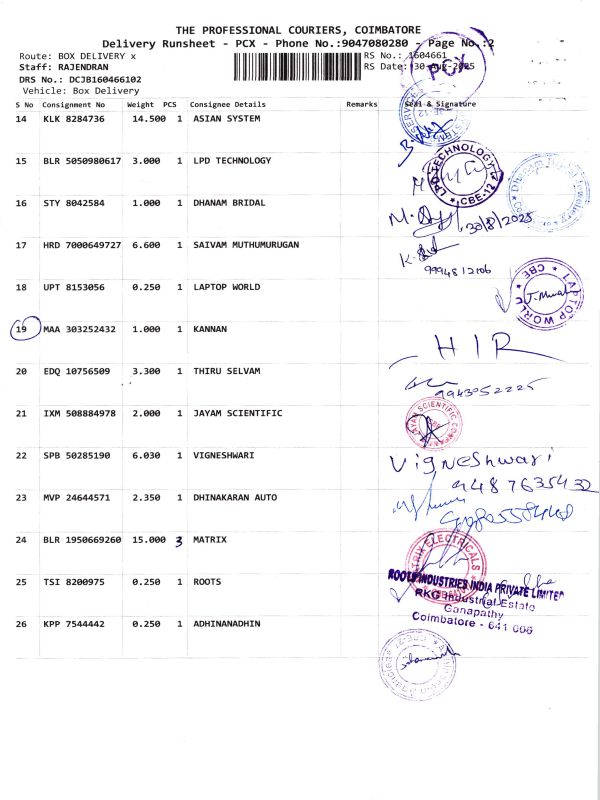 THE PROFESSIONAL COURIERS, COIMBATORE
Delivery Runsheet - PCX - Phone No.:9047080280 - Page No.:2
Route: BOX DELIVERY x
RS No.: 1604661
Staff: RAJENDRAN
RS Date: 30-Aug-2025
DRS No.: DCJB160466102
Vehicle: Box Delivery
PCX
S No Consignment No Weight PCS Consignee Details Remarks Seal & Signature
14 KLK 8284736 14.500 1 ASIAN SYSTEM
15 BLR 5050980617 3.000 1 LPD TECHNOLOGY
LPD TECHNOLOGY * CBE-12 *
16 STY 8042584 1.000 1 DHANAM BRIDAL
30/8/2025
17 HRD 7000649727 6.600 1 SAIVAM MUTHUMURUGAN
9994812106
18 UPT 8153056 0.250 1 LAPTOP WORLD
* LAPTOP WORLD * CBE
19 MAA 303252432 1.000 1 KANNAN
HIR
20 EDQ 10756509 3.300 1 THIRU SELVAM
9943052225
21 IXM 508884978 2.000 1 JAYAM SCIENTIFIC
JAYAM SCIENTIFIC COMPANY
22 SPB 50285190 6.030 1 VIGNESHWARI
Vigneshwari
9487635432
23 MVP 24644571 2.350 1 DHINAKARAN AUTO
24 BLR 1950669260 15.000 3 MATRIX
MATRIX ELECTRICALS
25 TSI 8200975 0.250 1 ROOTS
ROOTS INDUSTRIES INDIA PRIVATE LIMITED
RKG Industrial Estate
Ganapathy
Coimbatore - 641 006
26 KPP 7544442 0.250 1 ADHINANADHIN